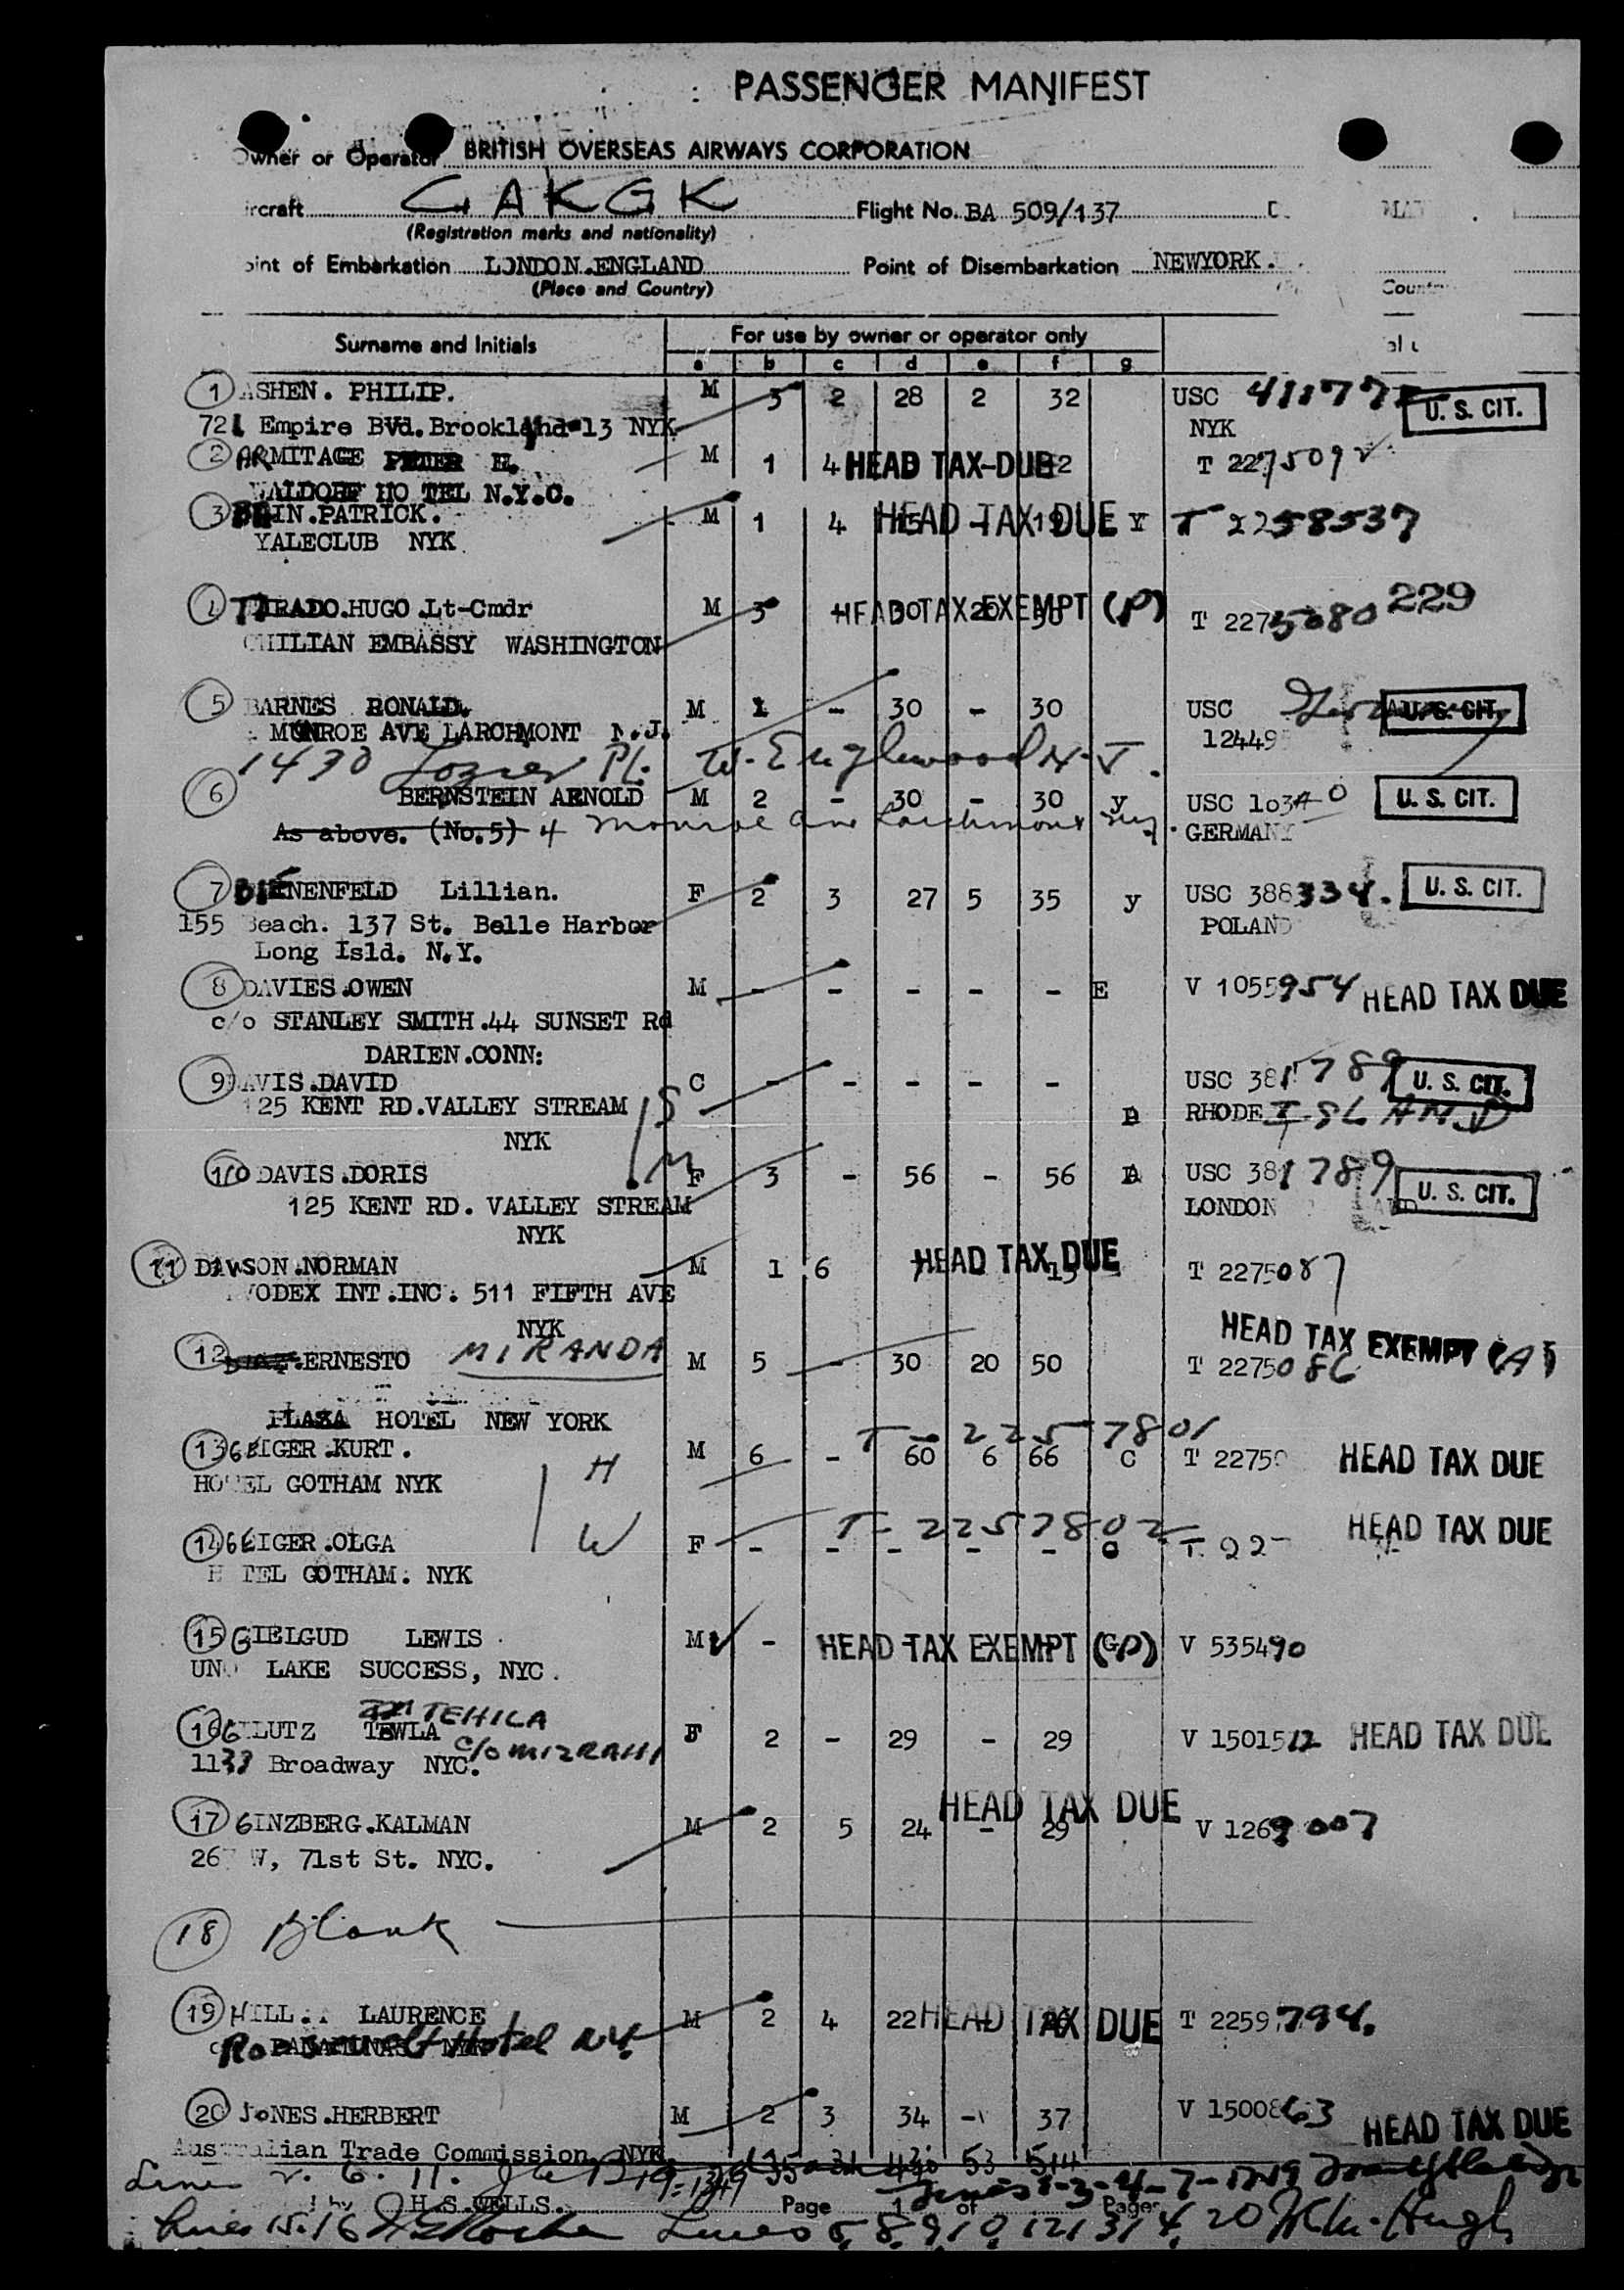 PASSENGER MANIFEST
Owner or Operator BRITISH OVERSEAS AIRWAYS CORPORATION
ircraft G AKGK Flight No. BA 509/137
(Registration marks and nationality)
oint of Embarkation LONDON.ENGLAND Point of Disembarkation NEWYORK.
(Place and Country)
Surname and Initials For use by owner or operator only
a b c d e f g
1 ASHEN. PHILIP. M 3 2 28 2 32 USC U. S. CIT.
721 Empire BVd. 13 NYK NYK
2 ARMITAGE PETER H. M 1 4 HEAD TAX DUE T 2275092
WALDORF HO TEL N.Y.C.
3 IN.PATRICK. M 1 4 15 - 19 HEAD TAX DUE Y T 2258537
YALECLUB NYK
4 TIRADO.HUGO.Lt-Cmdr M 3 HEAD TAX EXEMPT (P) T 2275080 229
CHILIAN EMBASSY WASHINGTON
5 BARNES RONALD. M 1 - 30 - 30 USC U. S. CIT.
MUNROE AVE LARCHMONT N.J. 12449
1430 Lozier Pl. W. Englewood N.J.
6 BERNSTEIN ARNOLD M 2 - 30 - 30 y USC 103 U. S. CIT.
As above. (No.5) 4 Monroe Ave Larchmont GERMANY
7 BIENENFELD Lillian. F 2 3 27 5 35 y USC 388334. U. S. CIT.
155 Beach. 137 St. Belle Harbor POLAND
Long Isld. N.Y.
8 DAVIES.OWEN M - - - - - E V 1055954 HEAD TAX DUE
c/o STANLEY SMITH.44 SUNSET Rd
DARIEN.CONN:
9 DAVIS.DAVID C - - - - - USC 381789 U. S. CIT.
125 KENT RD.VALLEY STREAM S A RHODE ISLAND
NYK
10 DAVIS.DORIS M F 3 - 56 - 56 A USC 381789 U. S. CIT.
125 KENT RD. VALLEY STREAM LONDON
NYK
11 DAWSON.NORMAN M 1 6 HEAD TAX DUE T 2275087
VODEX INT.INC. 511 FIFTH AVE
NYK
HEAD TAX EXEMPT (A)
12 DIAZ.ERNESTO MIRANDA M 5 - 30 20 50 T 2275086
PLAZA HOTEL NEW YORK
T-2257801
13 GEIGER.KURT. M 6 - 60 6 66 C T 2275 HEAD TAX DUE
HOTEL GOTHAM NYK H
T-2257802 HEAD TAX DUE
14 GEIGER.OLGA W F - - - - - C T 22
H TEL GOTHAM. NYK
15 GIELGUD LEWIS M - HEAD TAX EXEMPT (GP) V 535490
UNO LAKE SUCCESS, NYC.
TEHILA
16 GLUTZ TEWLA F 2 - 29 - 29 V 1501512 HEAD TAX DUE
1133 Broadway NYC. c/o MIZRAHI
HEAD TAX DUE
17 GINZBERG.KALMAN M 2 5 24 - 29 V 1269007
267 W, 71st St. NYC.
18 Blank
19 HILL LAURENCE M 2 4 22 HEAD TAX DUE T 2259794.
Roosevelt Hotel N.Y.
20 JONES.HERBERT M 2 3 34 - 37 V 1500863 HEAD TAX DUE
Australian Trade Commission, NYK 53
H.S.WELLS. Page 1 of Pages
Lines 15.16 Lines 5, 8, 9, 10, 12, 13, 14, 20